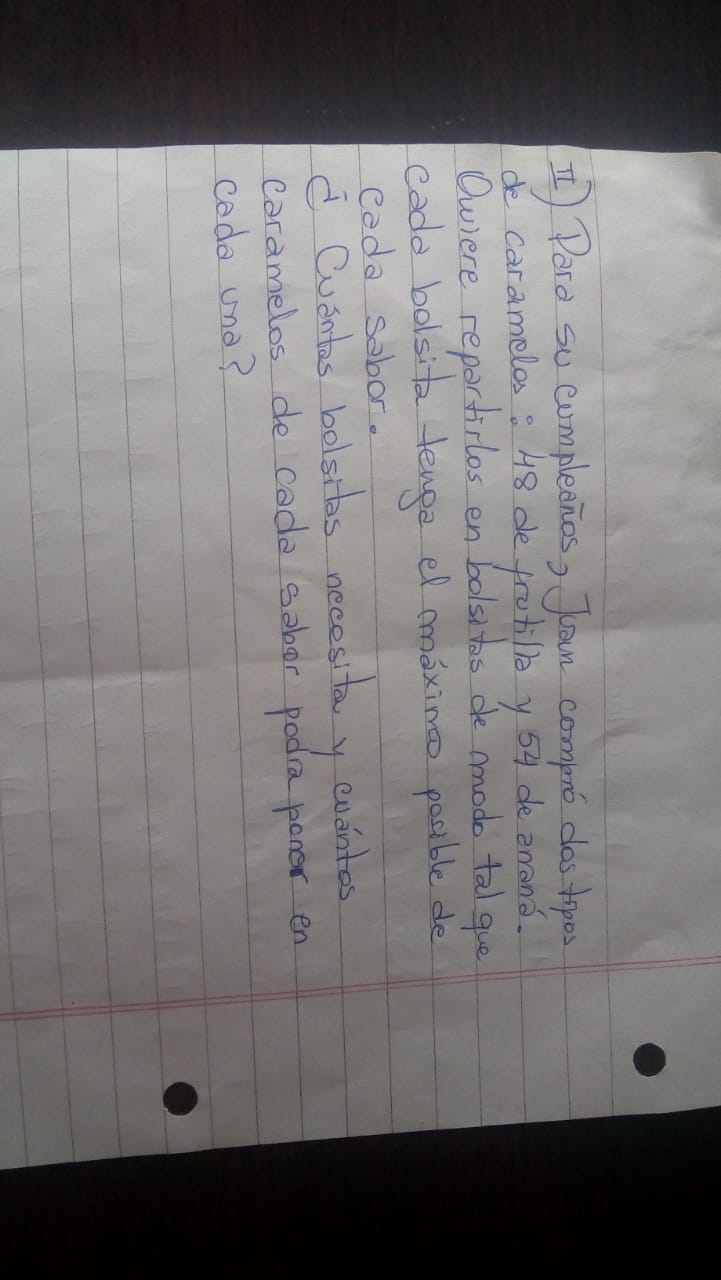 II) Para su cumpleaños, Juan compró dos tipos
de caramelos: 48 de frutilla y 54 de ananá.
Quiere repartirlos en bolsitas de modo tal que
cada bolsita tenga el máximo posible de
cada sabor.
¿Cuántas bolsitas necesita y cuántos
caramelos de cada sabor podra poner en
cada una?